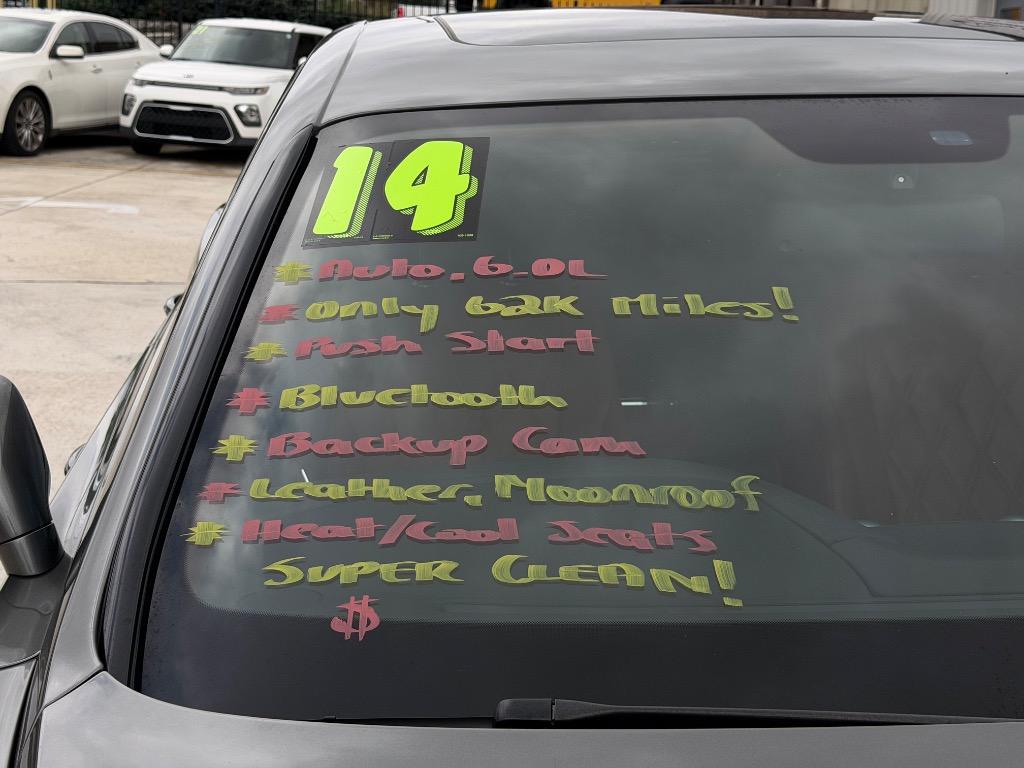 14
* Auto, 6.0L
* Only 62K Miles!
* Push Start
* Bluetooth
* Backup Cam
* Leather, Moonroof
* Heat/Cool Seats
SUPER CLEAN!
$